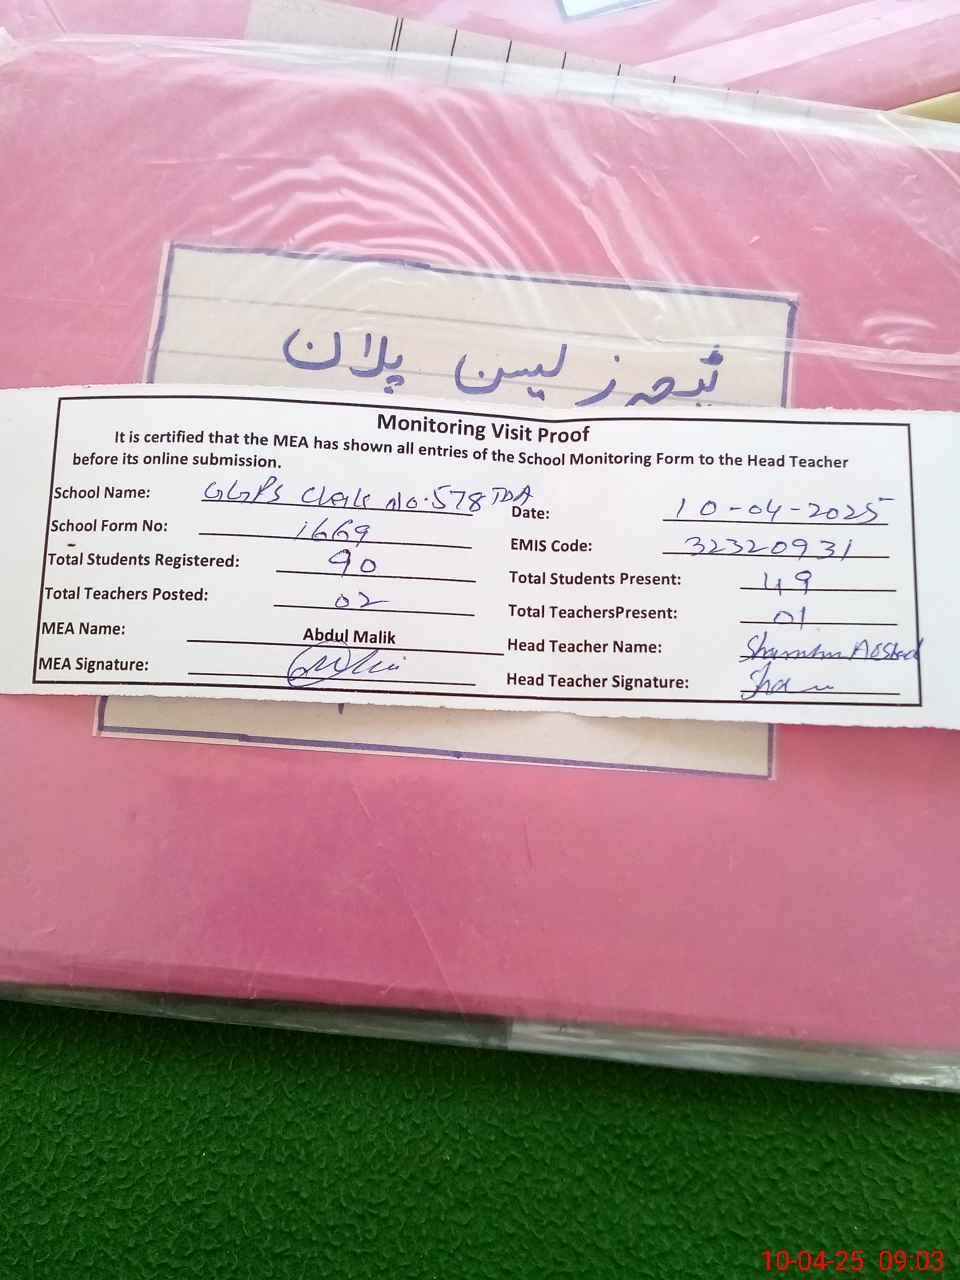 ٹیچرز لیسن پلان
Monitoring Visit Proof
It is certified that the MEA has shown all entries of the School Monitoring Form to the Head Teacher
before its online submission.
School Name: GGPS Chak No. 578 TDA
Date: 10-04-2025
School Form No: 1669
EMIS Code: 32320931
Total Students Registered: 90
Total Students Present: 49
Total Teachers Posted: 02
Total TeachersPresent: 01
MEA Name: Abdul Malik
Head Teacher Name:
MEA Signature:
Head Teacher Signature:
10-04-25 09:03